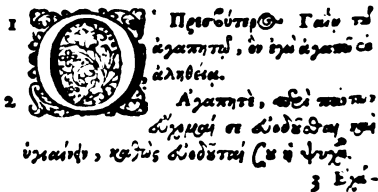 1 Ὁ Πρεσβύτερος Γαΐῳ τῷ
ἀγαπητῷ, ὃν ἐγὼ ἀγαπῶ ἐν
ἀληθείᾳ.
2 Ἀγαπητὲ, περὶ πάντων
εὔχομαί σε εὐοδοῦσθαι καὶ
ὑγιαίνειν, καθὼς εὐοδοῦταί σου ἡ ψυχή.
3 Ἐχά-